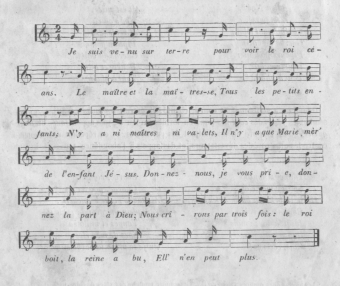 Je suis ve-nu sur ter-re pour voir le roi cé-
ans. Le maître et la maî-tres-se, Tous les pe-tits en-
fants; N'y a ni maîtres ni va-lets, Il n'y a que Marie, mèr'
de l'en-fant Jé-sus. Don-nez-nous, je vous pri-e, don-
nez la part à Dieu; Nous cri-rons par trois fois: le roi
boit, la reine a bu, Ell' n'en peut plus